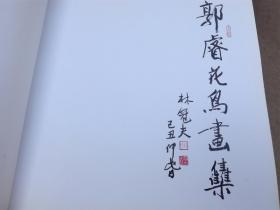 郭睿花鳥畫集
林冠夫
己丑仲春